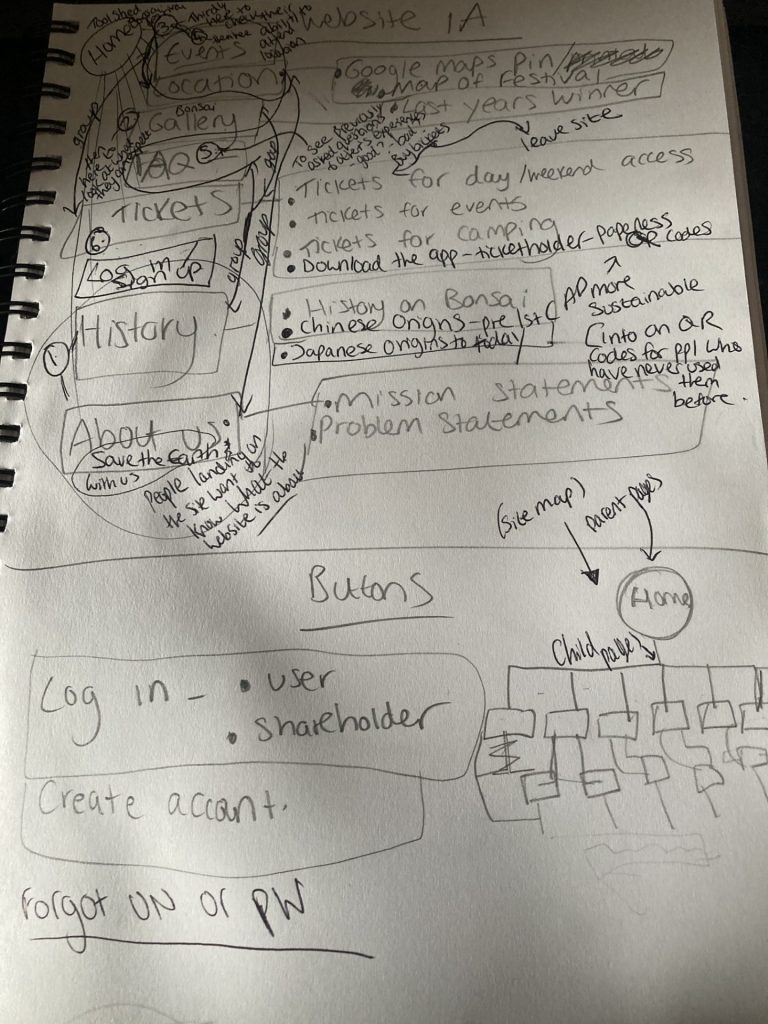 Toolshed
Home
Website IA
3. Thirdly
here to
check their
ability to
attend
location
4.
Events
Location
• Google maps pin/
• Map of Festival
• Last years winner
Bonsai
Gallery
2.
then
here to
look at what
group
FAQ 5.
To see previously
asked questions
good? bad?
Buy tickets
leave site
Tickets
• Tickets for day/weekend access
• Tickets for events
• Tickets for camping
• Download the app-ticketholder-paperless
QR codes
more
Sustainable
6.
Log in/
Sign up
group
group
History
• History on Bonsai
• Chinese Origins-pre 1st C AD
• Japanese origins to today
(into on QR
codes for ppl who
have never used
them
before.
1.
About us.
Save the Earth
with us
• Mission statements
• Problem Statements
People landing on
the site want to
know what the
website is about
(site map)
parent pages
Home
Child pages
Butons
Log in - • user
• shareholder
Create accont.
Forgot UN or PW